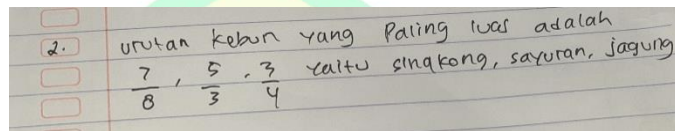 2. urutan kebun yang Paling luas adalah
7/8, 5/3, 3/4 Yaitu singkong, sayuran, jagung